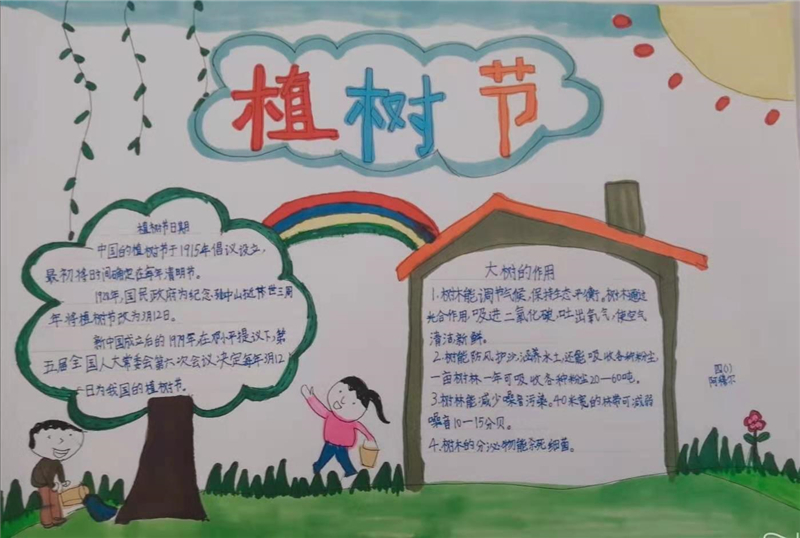 植树节
植树节日期
中国的植树节于1915年倡议设立,
最初将时间确定在每年清明节。
1928年,国民政府为纪念孙中山逝世三周
年将植树节改为3月12日。
新中国成立后的1979年在邓小平提议下,第
五届全国人大常委会第六次会议决定每年3月12
日为我国的植树节。
大树的作用
1.树林能调节气候,保持生态平衡。树木通过
光合作用,吸进二氧化碳,吐出氧气,使空气
清洁新鲜。
2.树能防风护沙,涵养水土,还能吸收各种粉尘,
一亩树林一年可吸收各种粉尘20—60吨。
3.树林能减少噪音污染。40米宽的林带可减弱
噪音10—15分贝。
4.树木的分泌物能杀死细菌。
四(1)